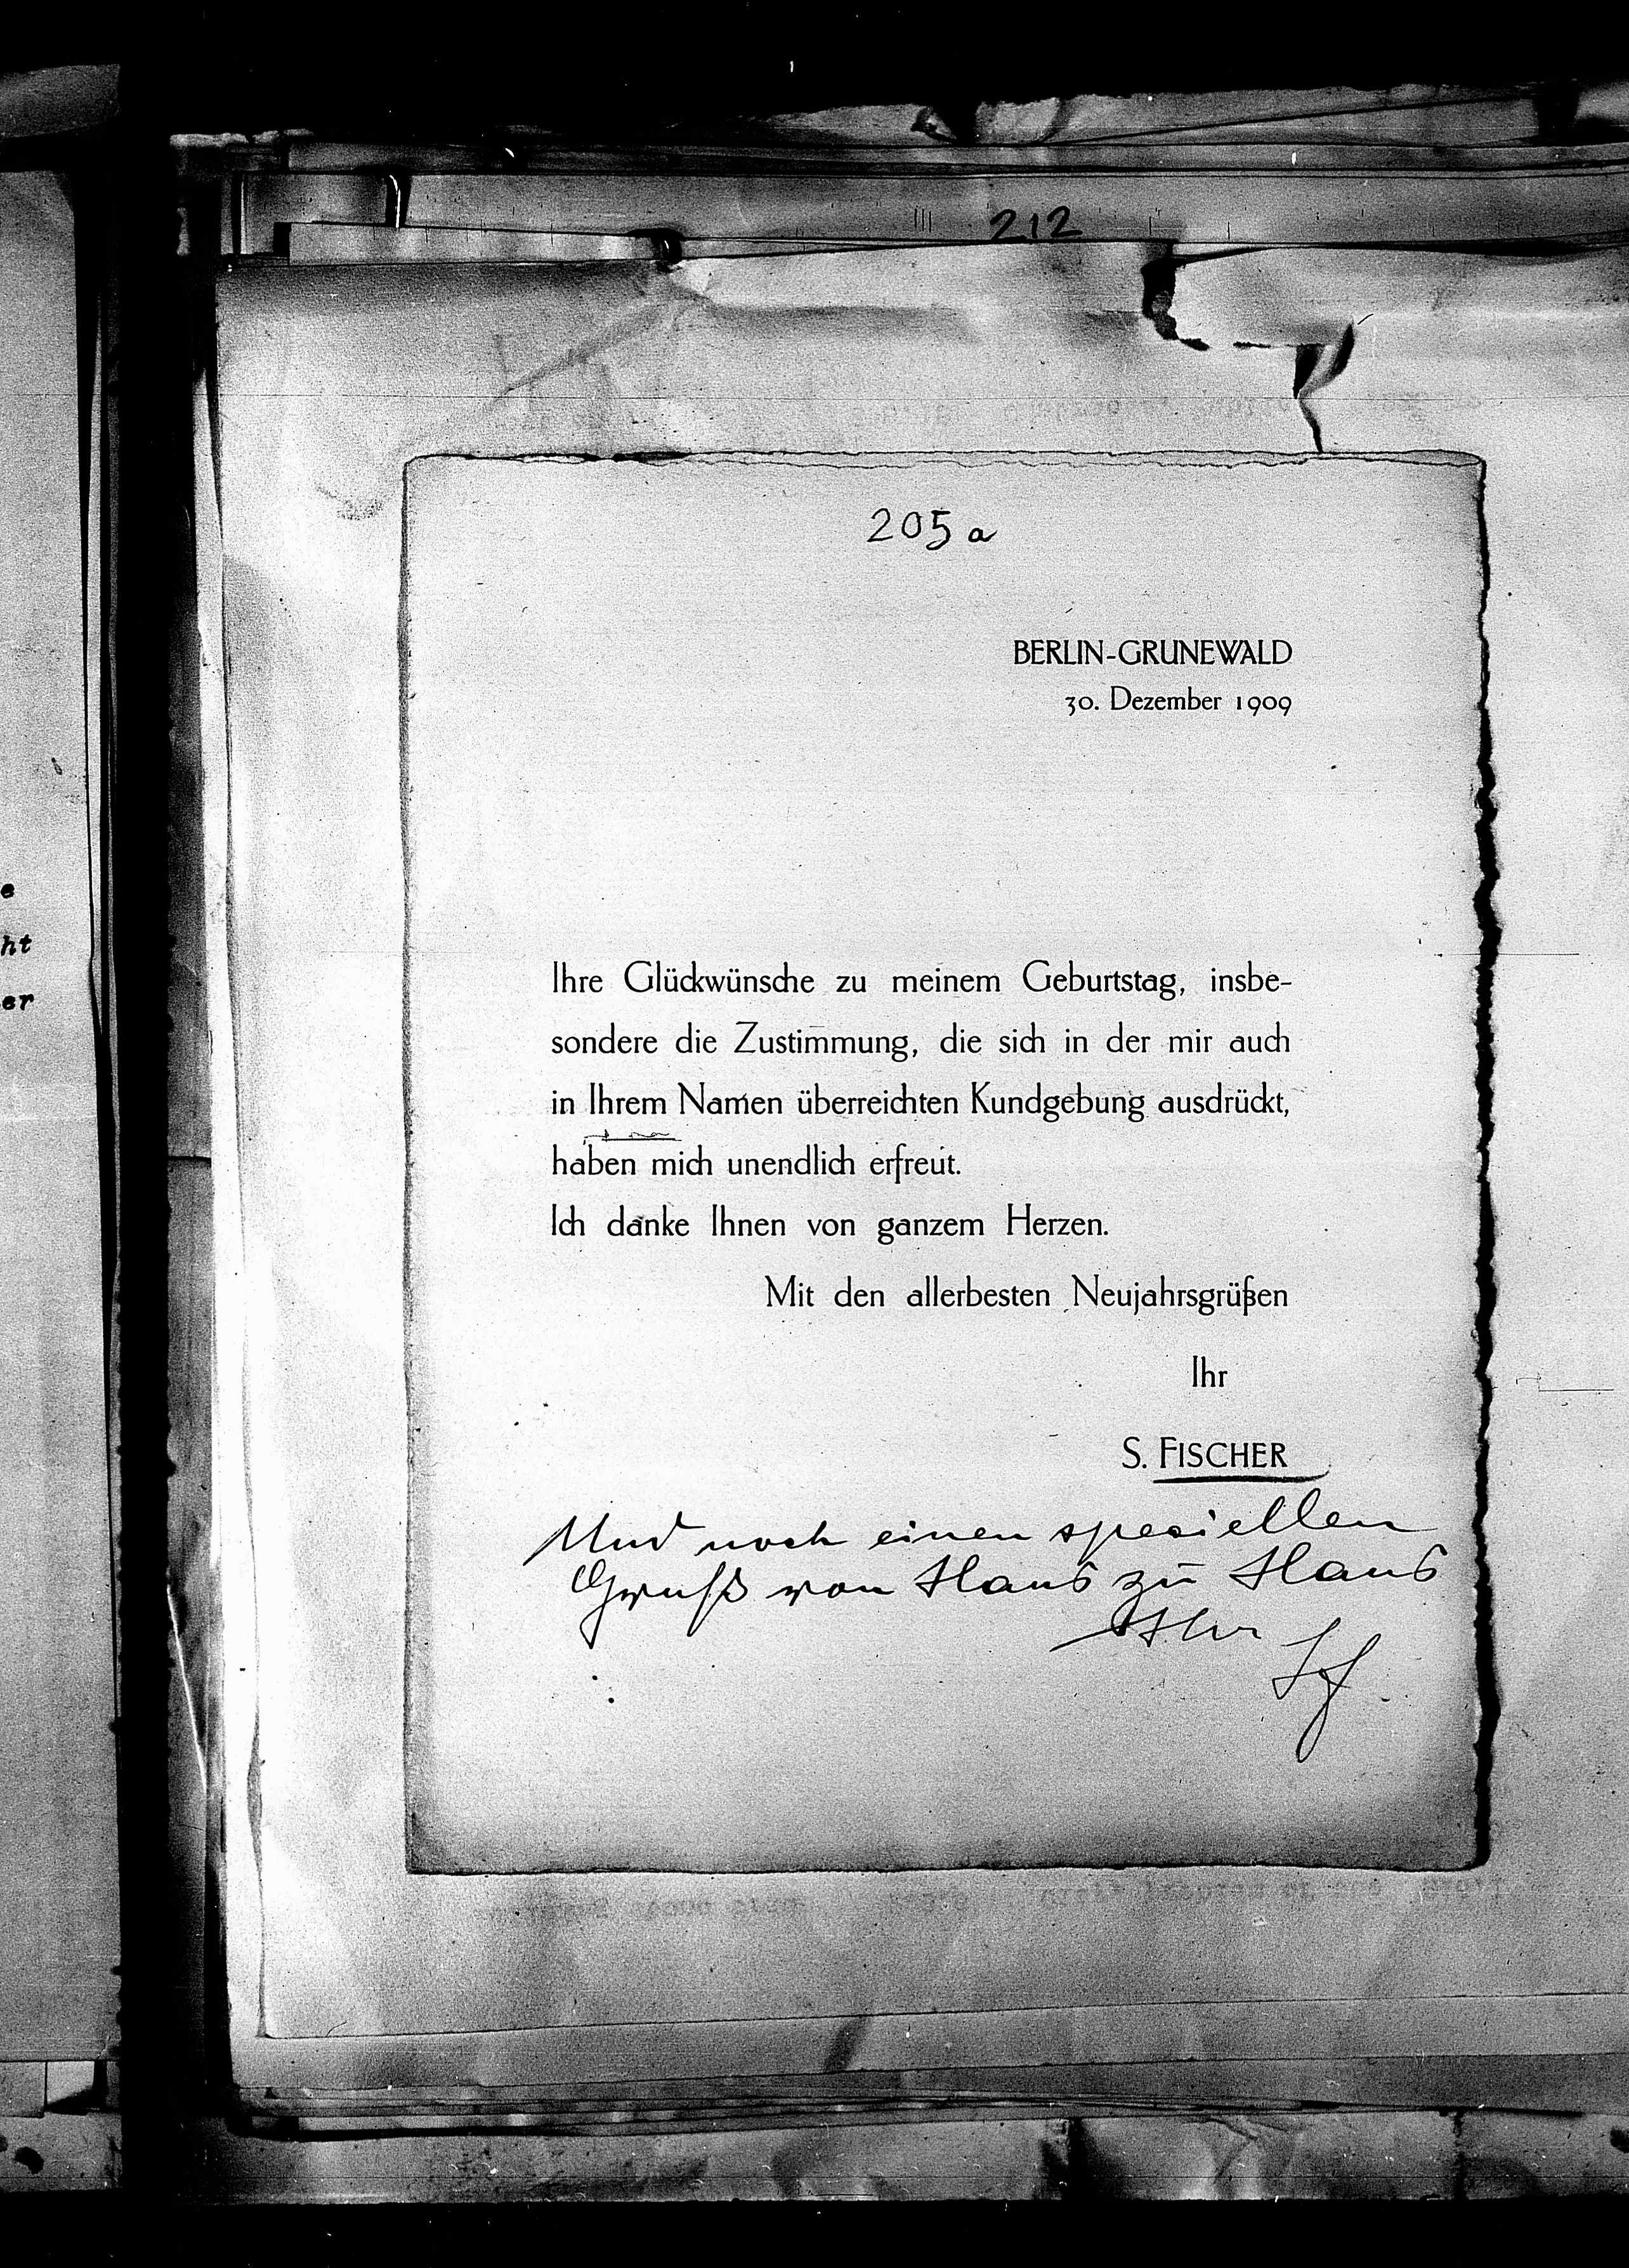 212
205 a
BERLIN-GRUNEWALD
30. Dezember 1909
Ihre Glückwünsche zu meinem Geburtstag, insbe-
sondere die Zustimmung, die sich in der mir auch
in Ihrem Namen überreichten Kundgebung ausdrückt,
haben mich unendlich erfreut.
Ich danke Ihnen von ganzem Herzen.
Mit den allerbesten Neujahrsgrüßen
Ihr
S. FISCHER
Und noch einen speziellen
Gruß von Haus zu Haus
Ihr SF
e
ht
er